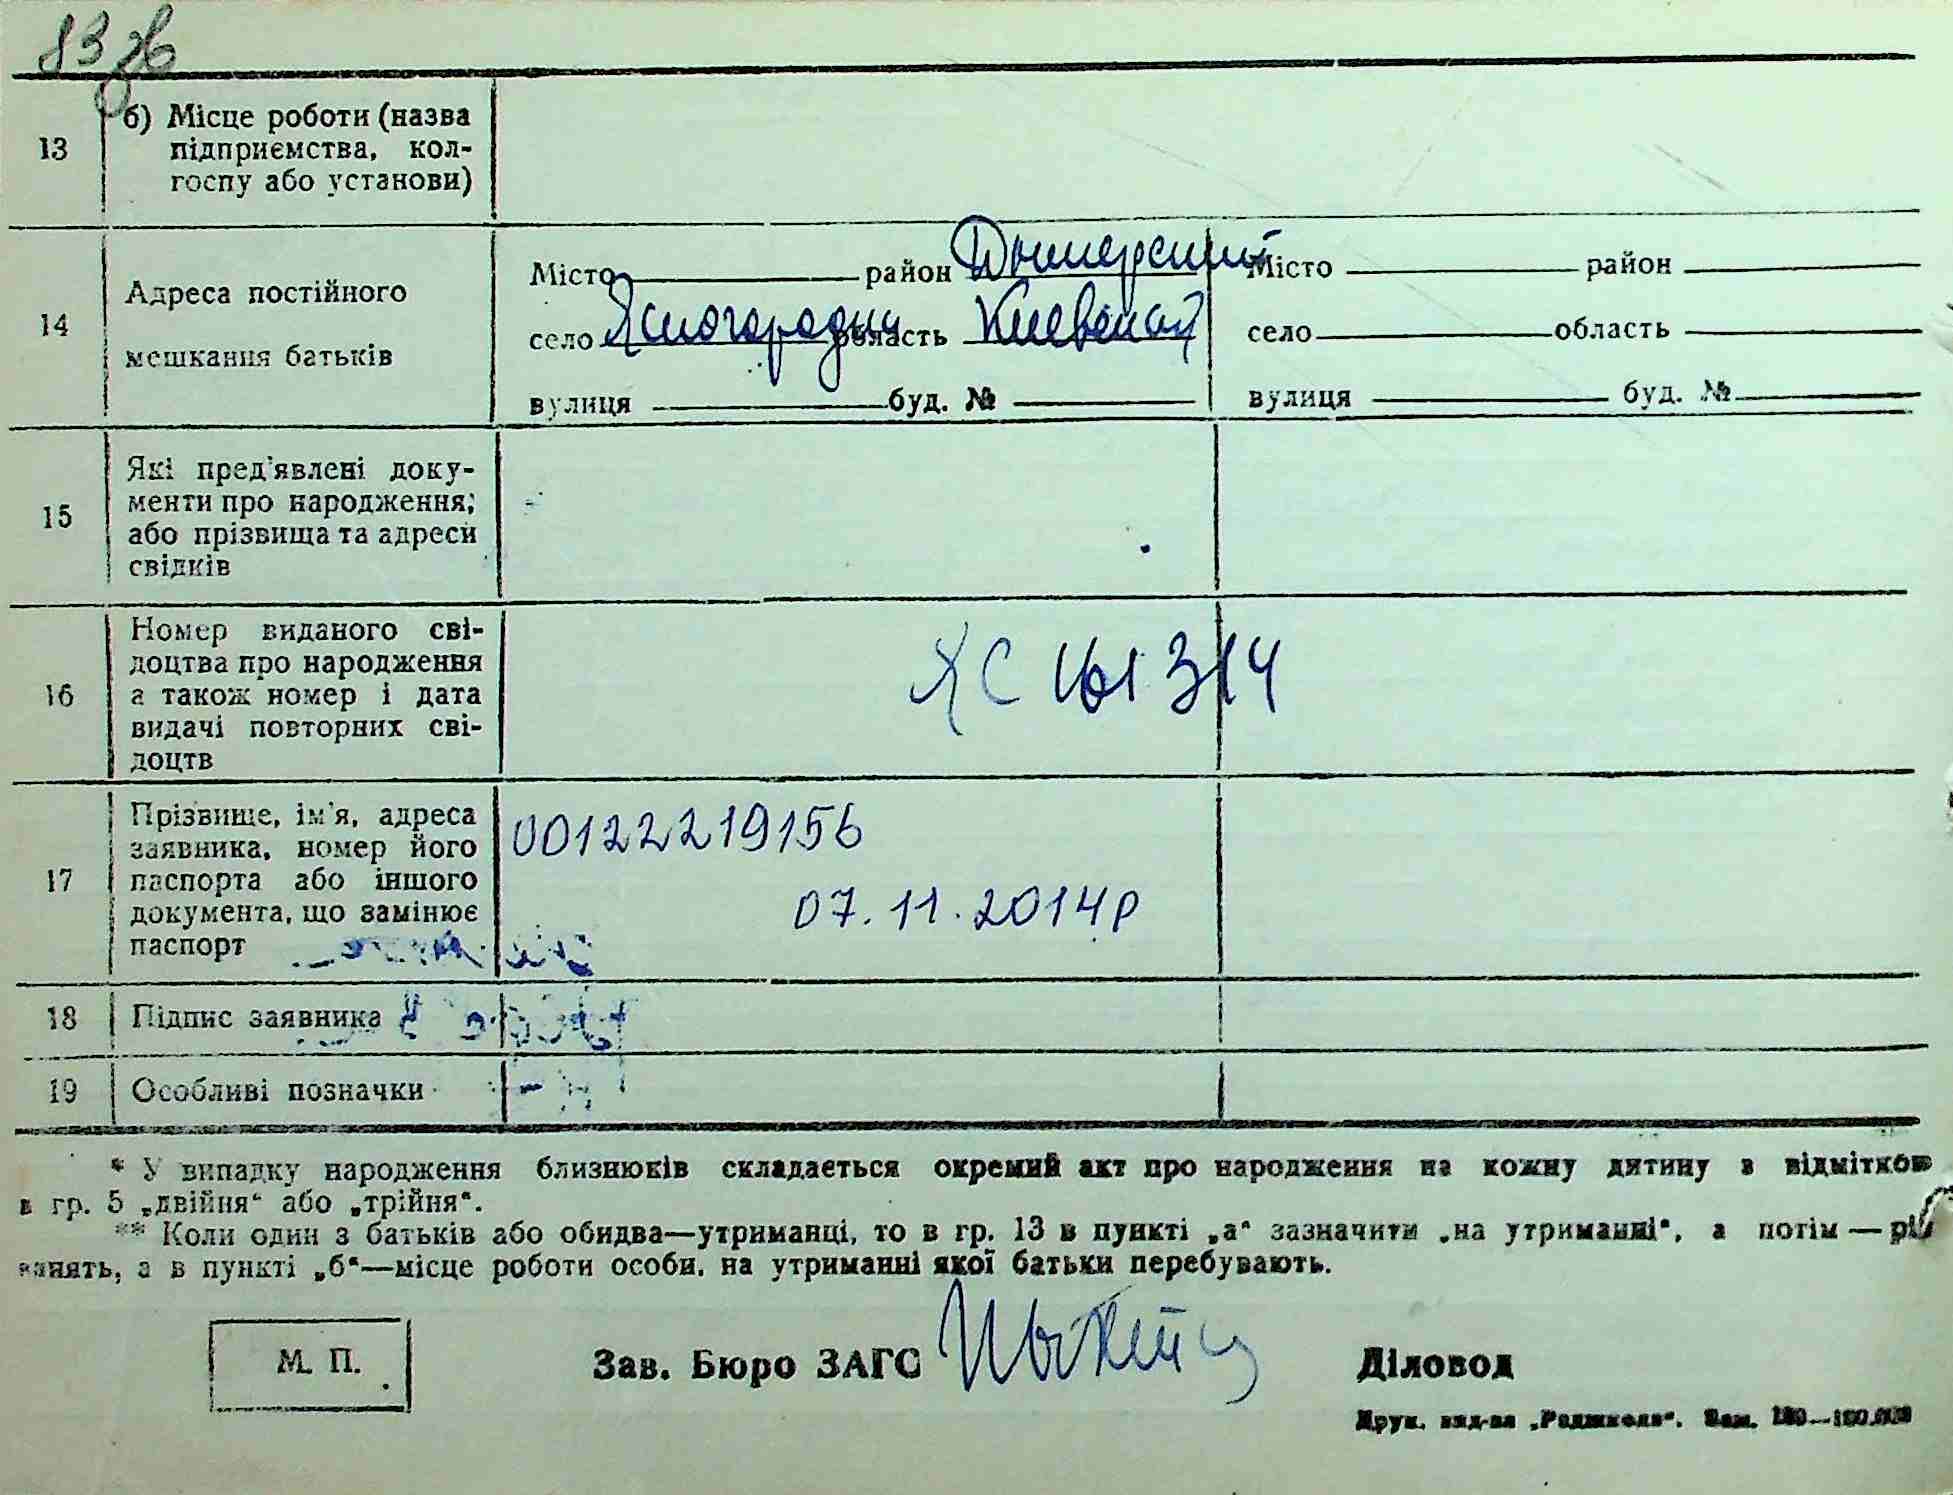 13
б) Місце роботи (назва
підприємства, кол-
госпу або установи)
14
Адреса постійного
мешкання батьків
Місто район Дымерский
село Ясногородка область Киевской
вулиця буд. №
Місто район
село область
вулиця буд. №
15
Які пред'явлені доку-
менти про народження,
або прізвища та адреси
свідків
16
Номер виданого сві-
доцтва про народження
а також номер і дата
видачі повторних сві-
доцтв
ЯС 161314
17
Прізвище, ім'я, адреса
заявника, номер його
паспорта або іншого
документа, що замінює
паспорт
00122219156
07.11.2014р
18 Підпис заявника
19 Особливі позначки
* У випадку народження близнюків складається окремий акт про народження на кожну дитину з відміткою
в гр. 5 „двійня“ або „трійня“.
** Коли один з батьків або обидва—утриманці, то в гр. 13 в пункті „а“ зазначити „на утриманні“, а потім —
занять, а в пункті „б“—місце роботи особи, на утриманні якої батьки перебувають.
М. П.
Зав. Бюро ЗАГС
Діловод
Друк. вид-ва „Радшкола“. Зам.